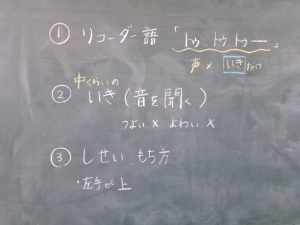 ① リコーダー語「トゥ トゥ トゥー」
声× いきだけ
中くらいの
② いき(音を聞く)
つよい× よわい×
③ しせい、もち方
・左手が上